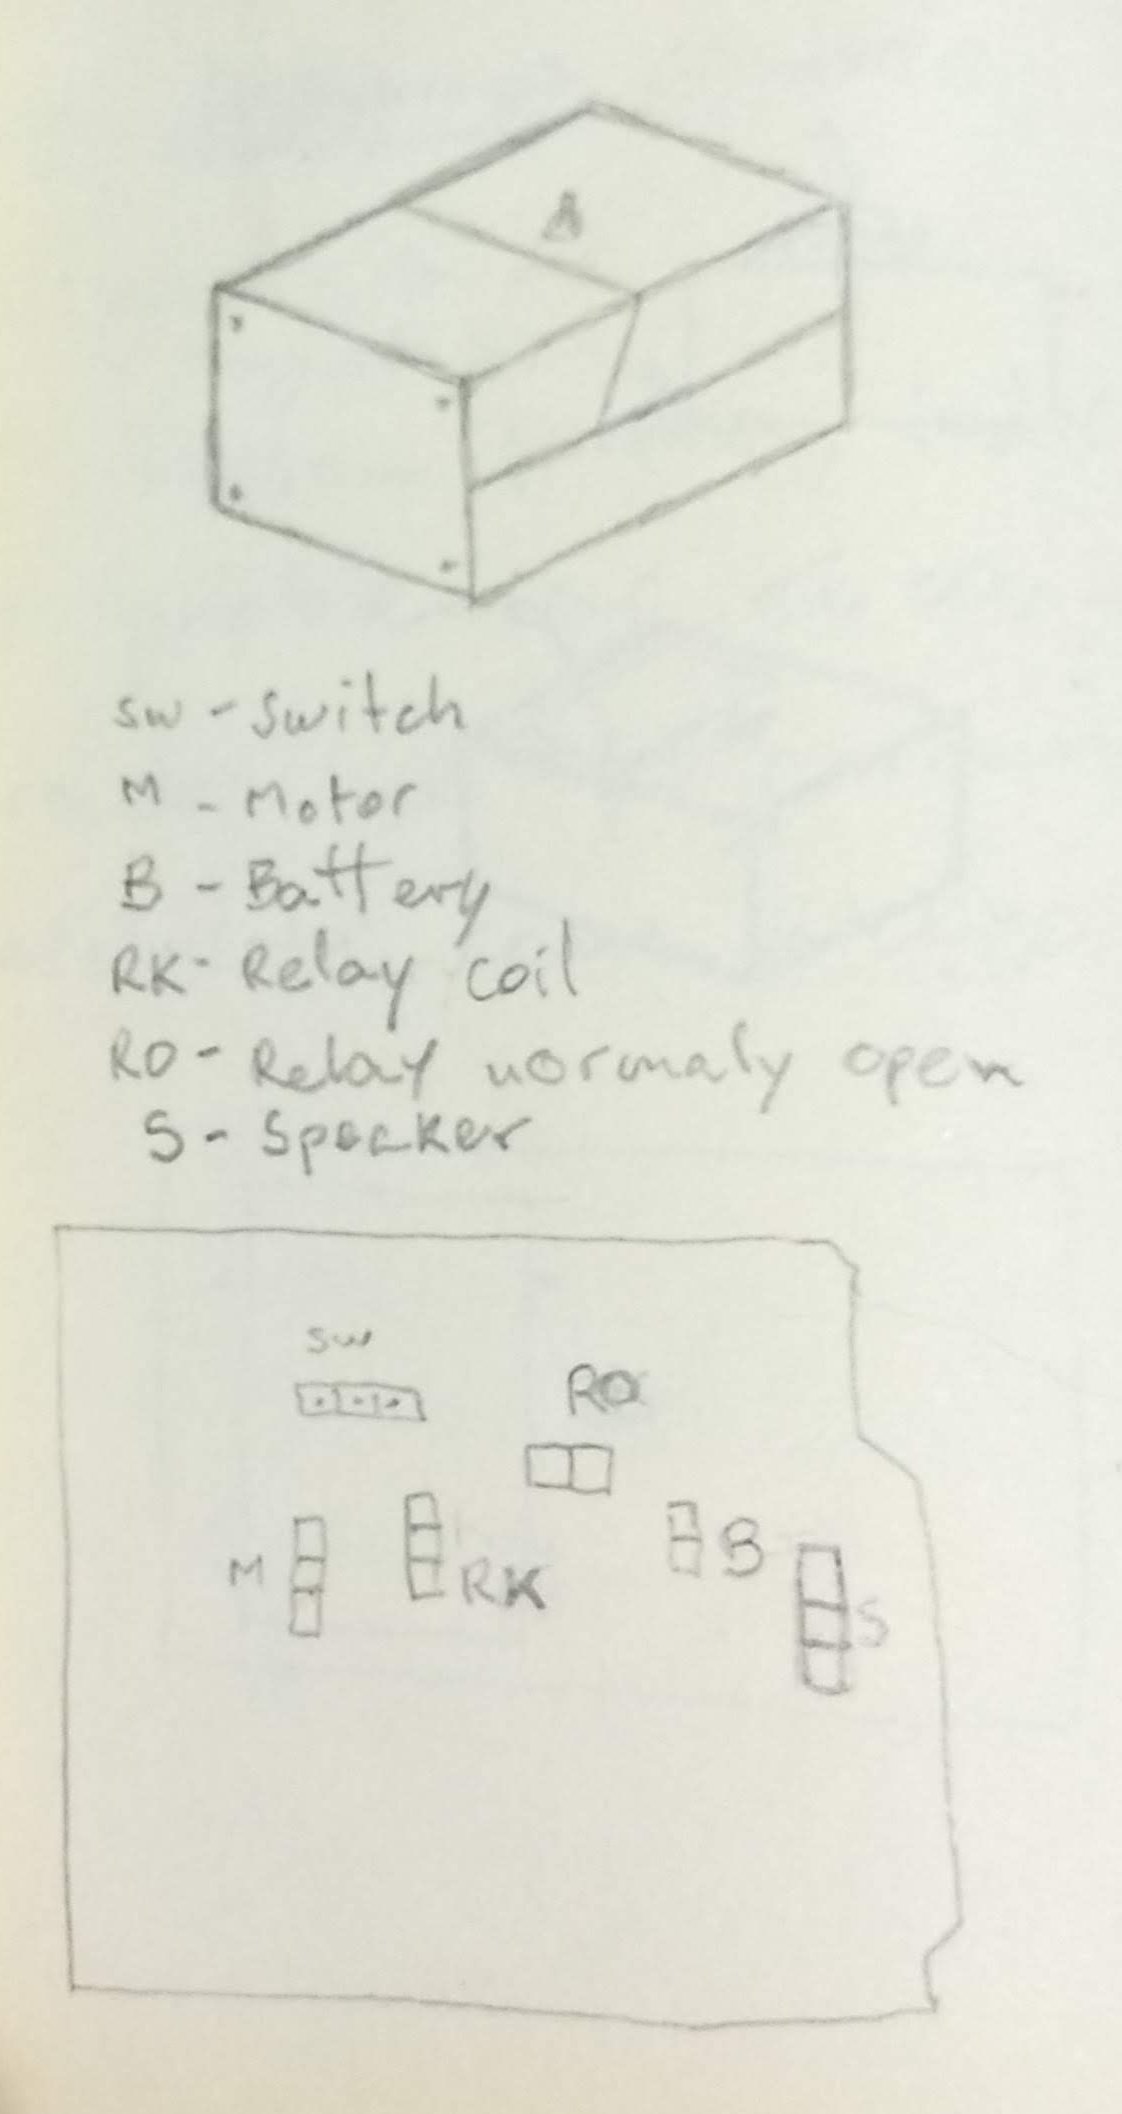 A
SW - Switch
M - Motor
B - Battery
RK - Relay coil
RO - Relay normaly open
S - Speaker
SW
RO
M
RK
B
S